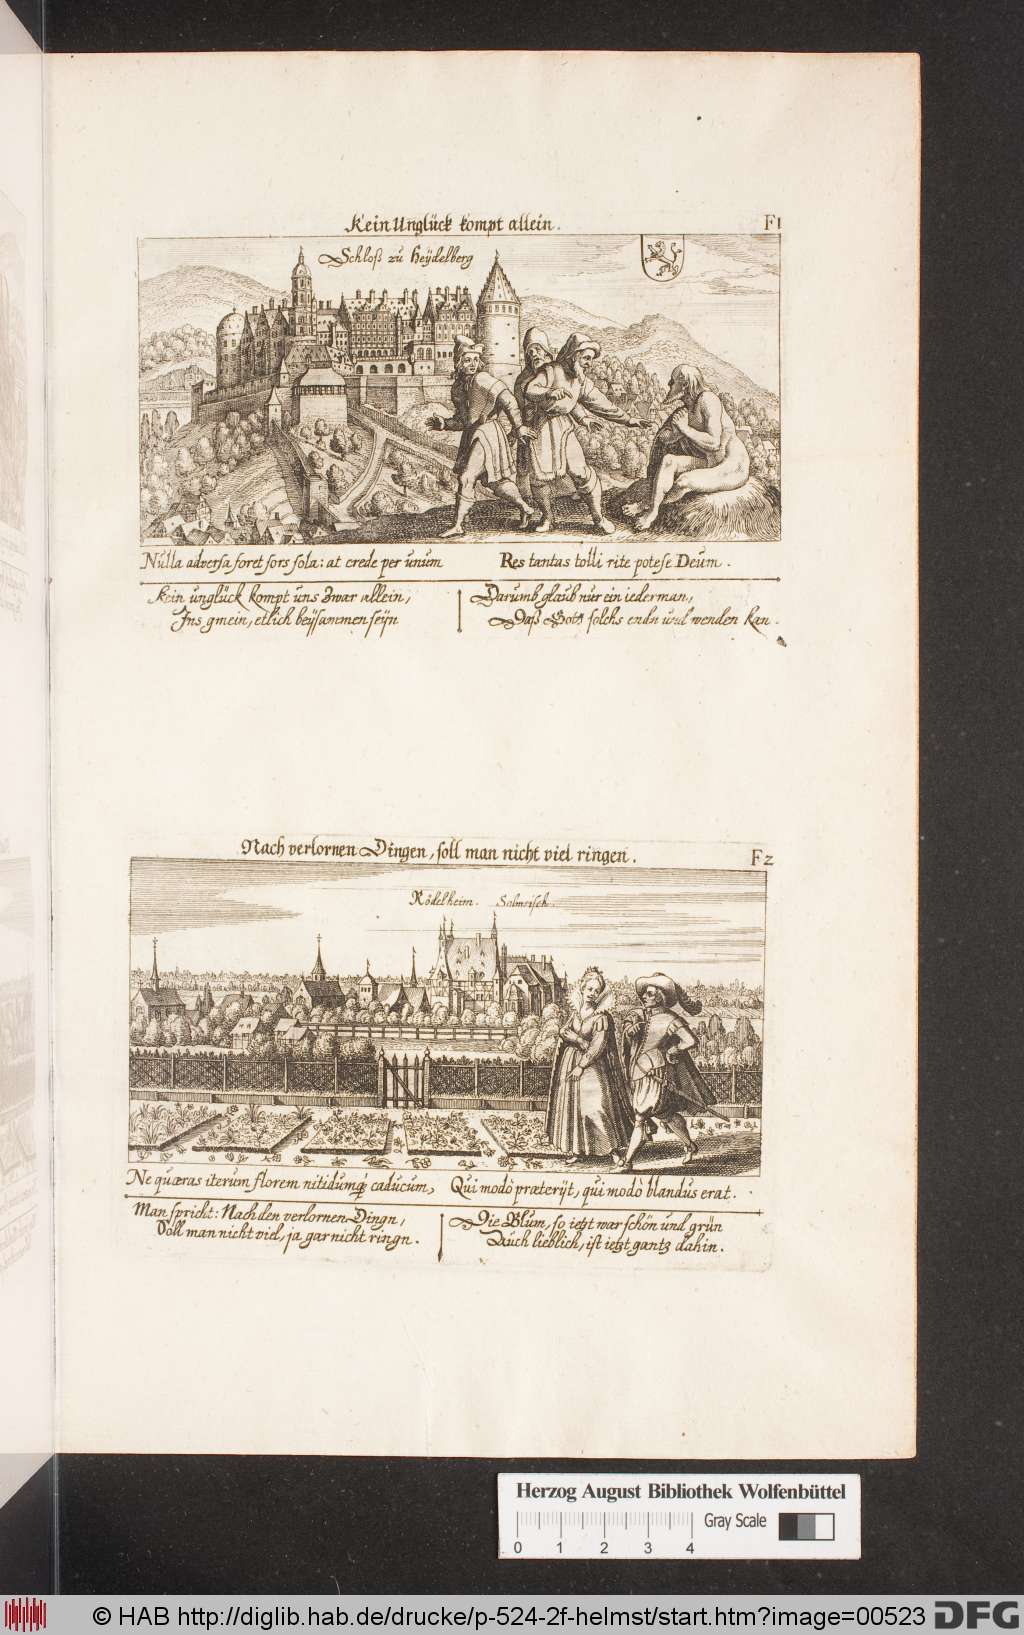 Kein Unglück kompt allein.
F1
Schloß zu Heÿdelberg
Nulla adversa foret sors sola: at crede per unum
Res tantas tolli rite potese Deum.
Kein unglück kompt uns zwar allein,
Ins gmein, etlich beÿsammen seÿn
Darumb glaub nur ein iederman,
Daß Gott solchs endn und wenden kan.
Nach verlornen Dingen, soll man nicht viel ringen.
F2
Rödelheim. Solmsisch.
Ne quæras iterum florem nitidumq́ caducum,
Qui modò præterijt, qui modò blandus erat.
Man spricht: Nach den verlornen Dingn,
Soll man nicht viel, ja gar nicht ringn.
Die Blum, so ietzt war schön und grün
Auch lieblich, ist ietzt gantz dahin.
Herzog August Bibliothek Wolfenbüttel
Gray Scale
0 1 2 3 4
© HAB http://diglib.hab.de/drucke/p-524-2f-helmst/start.htm?image=00523
DFG